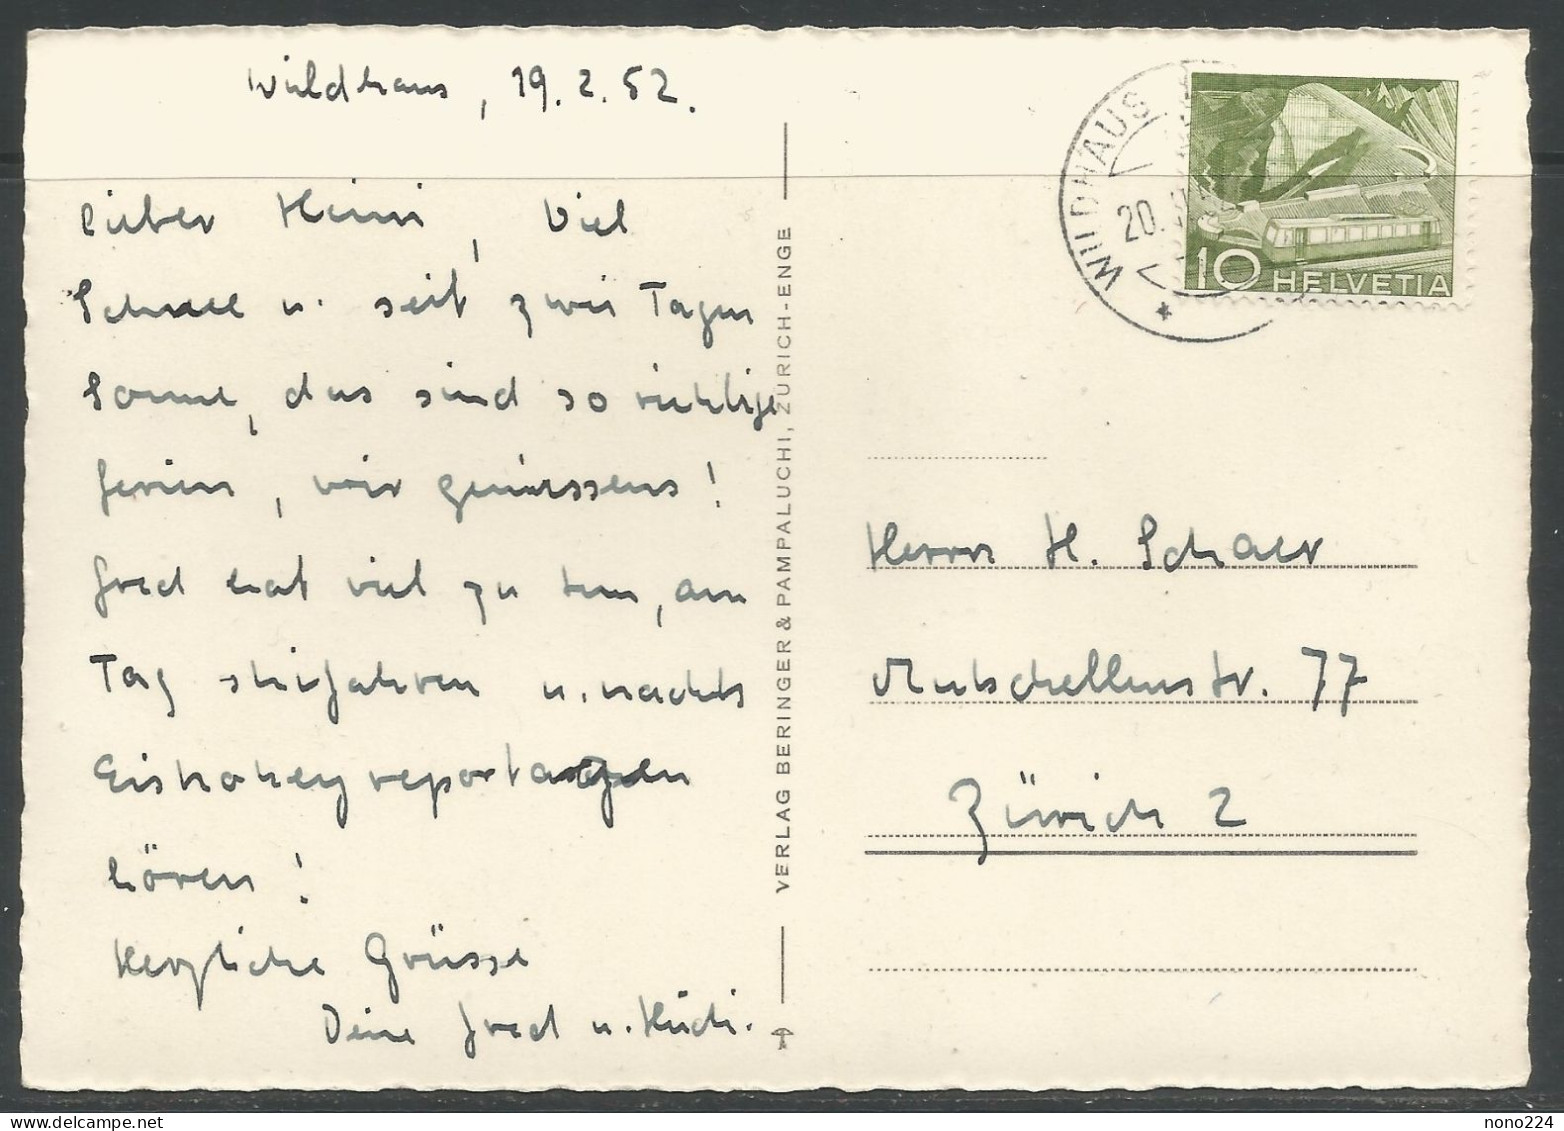 Wildhaus, 19.2.52.
Lieber Heini, Viel
Schnee u. seit zwei Tagen
Sonne, das sind so richtige
Ferien, wir geniessens!
Fred hat viel zu tun, am
Tag skifahren u. nachts
Eishokeyreportagen
hören!
Herzliche Grüsse
Deine Fred u.
VERLAG BERINGER & PAMPALUCHI, ZÜRICH-ENGE
WILDHAUS
20.
10 HELVETIA
Herrn H. Schaer
Mutschellenstr. 77
Zürich 2
nono224